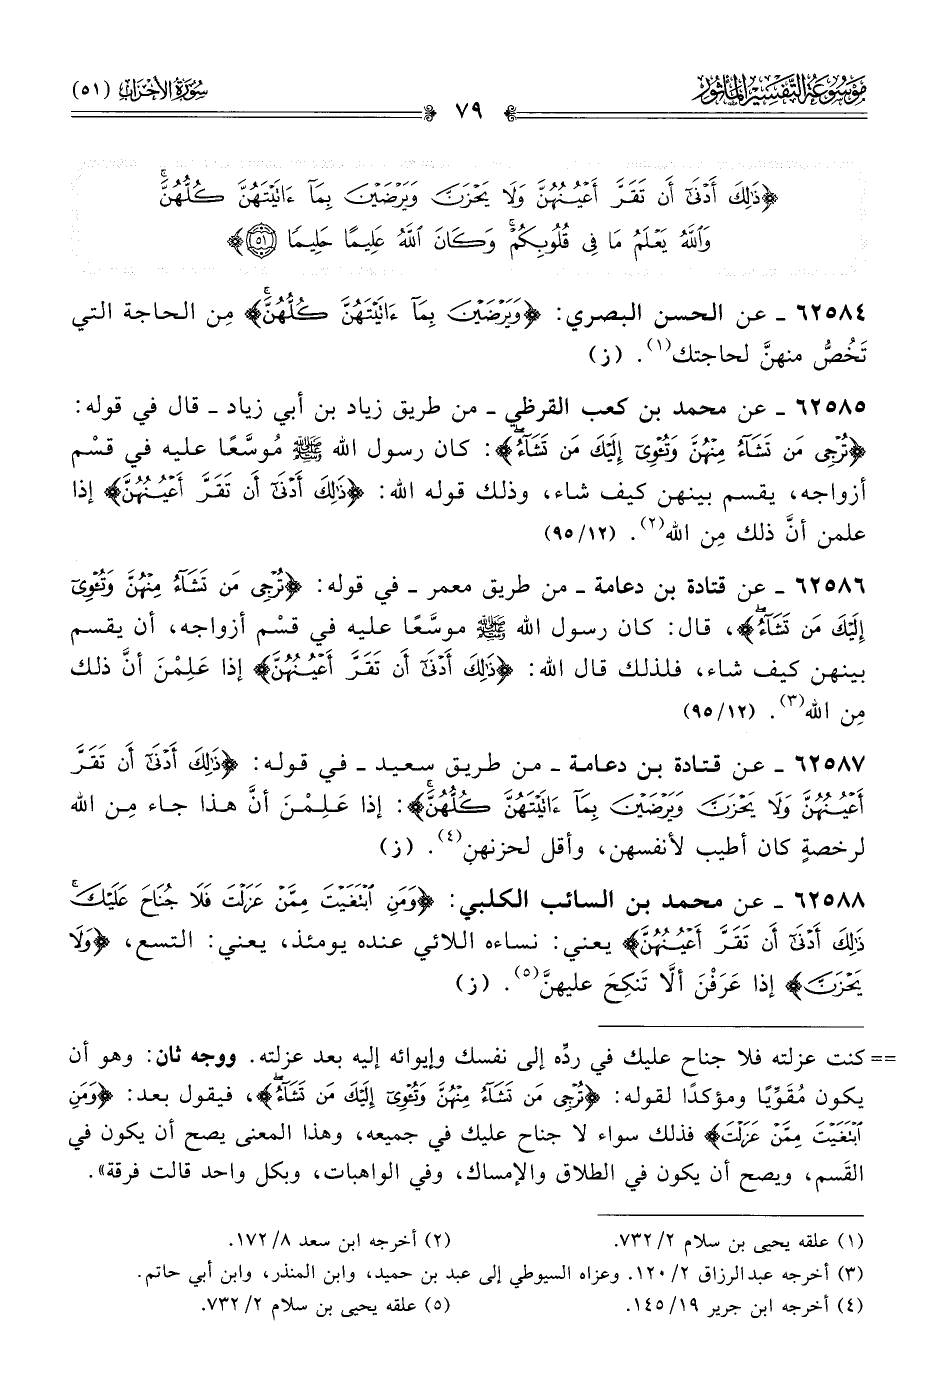 مَوْسُوعَة التَّفْسِير المَأْثُور
سُورَةُ الأَحْزَاب (٥١)
٧٩
﴿ذَٰلِكَ أَدْنَىٰٓ أَن تَقَرَّ أَعْيُنُهُنَّ وَلَا يَحْزَنَّ وَيَرْضَيْنَ بِمَآ ءَاتَيْتَهُنَّ كُلُّهُنَّۚ
وَٱللَّهُ يَعْلَمُ مَا فِى قُلُوبِكُمْۚ وَكَانَ ٱللَّهُ عَلِيمًا حَلِيمًا ٥١﴾
٦٢٥٨٤ ـ عن الحسن البصري: ﴿وَيَرْضَيْنَ بِمَآ ءَاتَيْتَهُنَّ كُلُّهُنَّۚ﴾ مِن الحاجة التي
تَخُصُّ منهنَّ لحاجتك(١). (ز)
٦٢٥٨٥ ـ عن محمد بن كعب القرظي ـ من طريق زياد بن أبي زياد ـ قال في قوله:
﴿تُرْجِى مَن تَشَآءُ مِنْهُنَّ وَتُـْٔوِىٓ إِلَيْكَ مَن تَشَآءُۖ﴾: كان رسول الله ﷺ مُوسَّعًا عليه في قسْم
أزواجه، يقسم بينهن كيف شاء، وذلك قوله الله: ﴿ذَٰلِكَ أَدْنَىٰٓ أَن تَقَرَّ أَعْيُنُهُنَّ﴾ إذا
علمن أنَّ ذلك مِن الله(٢). (١٢/ ٩٥)
٦٢٥٨٦ ـ عن قتادة بن دعامة ـ من طريق معمر ـ في قوله: ﴿تُرْجِى مَن تَشَآءُ مِنْهُنَّ وَتُـْٔوِىٓ
إِلَيْكَ مَن تَشَآءُۖ﴾، قال: كان رسول الله ﷺ موسَّعًا عليه في قسْم أزواجه، أن يقسم
بينهن كيف شاء، فلذلك قال الله: ﴿ذَٰلِكَ أَدْنَىٰٓ أَن تَقَرَّ أَعْيُنُهُنَّ﴾ إذا عَلِمْنَ أنَّ ذلك
مِن الله(٣). (١٢/ ٩٥)
٦٢٥٨٧ ـ عن قتادة بن دعامة ـ من طريق سعيد ـ في قوله: ﴿ذَٰلِكَ أَدْنَىٰٓ أَن تَقَرَّ
أَعْيُنُهُنَّ وَلَا يَحْزَنَّ وَيَرْضَيْنَ بِمَآ ءَاتَيْتَهُنَّ كُلُّهُنَّۚ﴾: إذا عَلِمْنَ أنَّ هذا جاء مِن الله
لرخصةٍ كان أطيب لأنفسهن، وأقل لحزنهن(٤). (ز)
٦٢٥٨٨ ـ عن محمد بن السائب الكلبي: ﴿وَمَنِ ٱبْتَغَيْتَ مِمَّنْ عَزَلْتَ فَلَا جُنَاحَ عَلَيْكَۚ
ذَٰلِكَ أَدْنَىٰٓ أَن تَقَرَّ أَعْيُنُهُنَّ﴾ يعني: نساءه اللائي عنده يومئذ، يعني: التسع، ﴿وَلَا
يَحْزَنَّ﴾ إذا عَرَفْنَ ألَّا تَنكِحَ عليهنَّ(٥). (ز)
== كنت عزلته فلا جناح عليك في ردِّه إلى نفسك وإيوائه إليه بعد عزلته. ووجه ثان: وهو أن
يكون مُقَوِّيًا ومؤكدًا لقوله: ﴿تُرْجِى مَن تَشَآءُ مِنْهُنَّ وَتُـْٔوِىٓ إِلَيْكَ مَن تَشَآءُۖ﴾، فيقول بعد: ﴿وَمَنِ
ٱبْتَغَيْتَ مِمَّنْ عَزَلْتَ﴾ فذلك سواء لا جناح عليك في جميعه، وهذا المعنى يصح أن يكون في
القَسم، ويصح أن يكون في الطلاق والإمساك، وفي الواهبات، وبكل واحد قالت فرقة».
(١) علقه يحيى بن سلام ٢/ ٧٣٢. (٢) أخرجه ابن سعد ٨/ ١٧٢.
(٣) أخرجه عبدالرزاق ٢/ ١٢٠. وعزاه السيوطي إلى عبد بن حميد، وابن المنذر، وابن أبي حاتم.
(٤) أخرجه ابن جرير ١٩/ ١٤٥. (٥) علقه يحيى بن سلام ٢/ ٧٣٢.